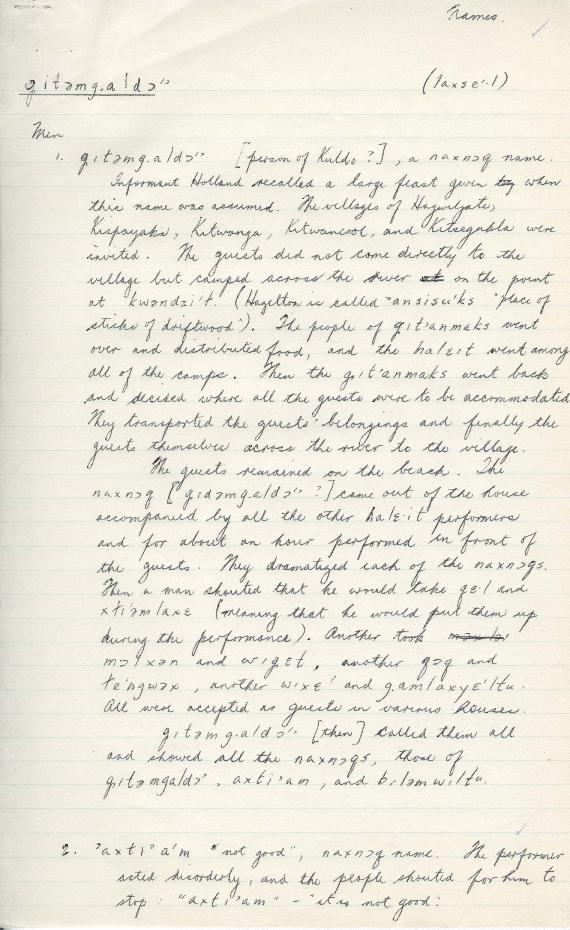 Names.
gitəmg.aldɔ'' (laxse'l)
Men
1. gɩtəmg.aldɔ'' [person of Kuldo ?], a naxnɔq name.
Informant Holland recalled a large feast given by when
this name was assumed. The villages of Hagwilgate,
Kispayaks, Kitwanga, Kitwancool, and Kitsegukla were
invited. The guests did not come directly to the
village but camped across the river on the point
at kwəndzi't. (Hazelton is called 'ansisu'ks "place of
sticks of driftwood"). The people of gɩt'anmaks went
over and distributed food, and the halɛit went among
all of the camps. Then the gɩt'anmaks went back
and decided where all the guests were to be accommodated
They transported the guests' belongings and finally the
guests themselves across the river to the village.
The guests remained on the beach. The
naxnɔq ["gɩdəmg.aldɔ'' ?] came out of the house
accompanied by all the other halɛ·it performers
and for about an hour performed in front of
the guests. They dramatized each of the naxnɔqs.
Then a man shouted that he would take gɛ·l and
xti'əmlaxɛ (meaning that he would put them up
during the performance). Another took
mɔlxən and wigɛt, another qɔq and
te'ngwəx, another wɩxɛ' and g.amlaxyɛ'ltu.
All were accepted as guests in various houses.
gɩtəmg.aldɔ'' [then] called them all
and showed all the naxnɔqs, those of
gɩtəmgaldɔ', axti'am, and bɩləmwɩltu.
2. 'axti'a'm "not good", naxnɔq name. The performer
acted disorderly, and the people shouted for him to
stop: "axti'am" - "it is not good."